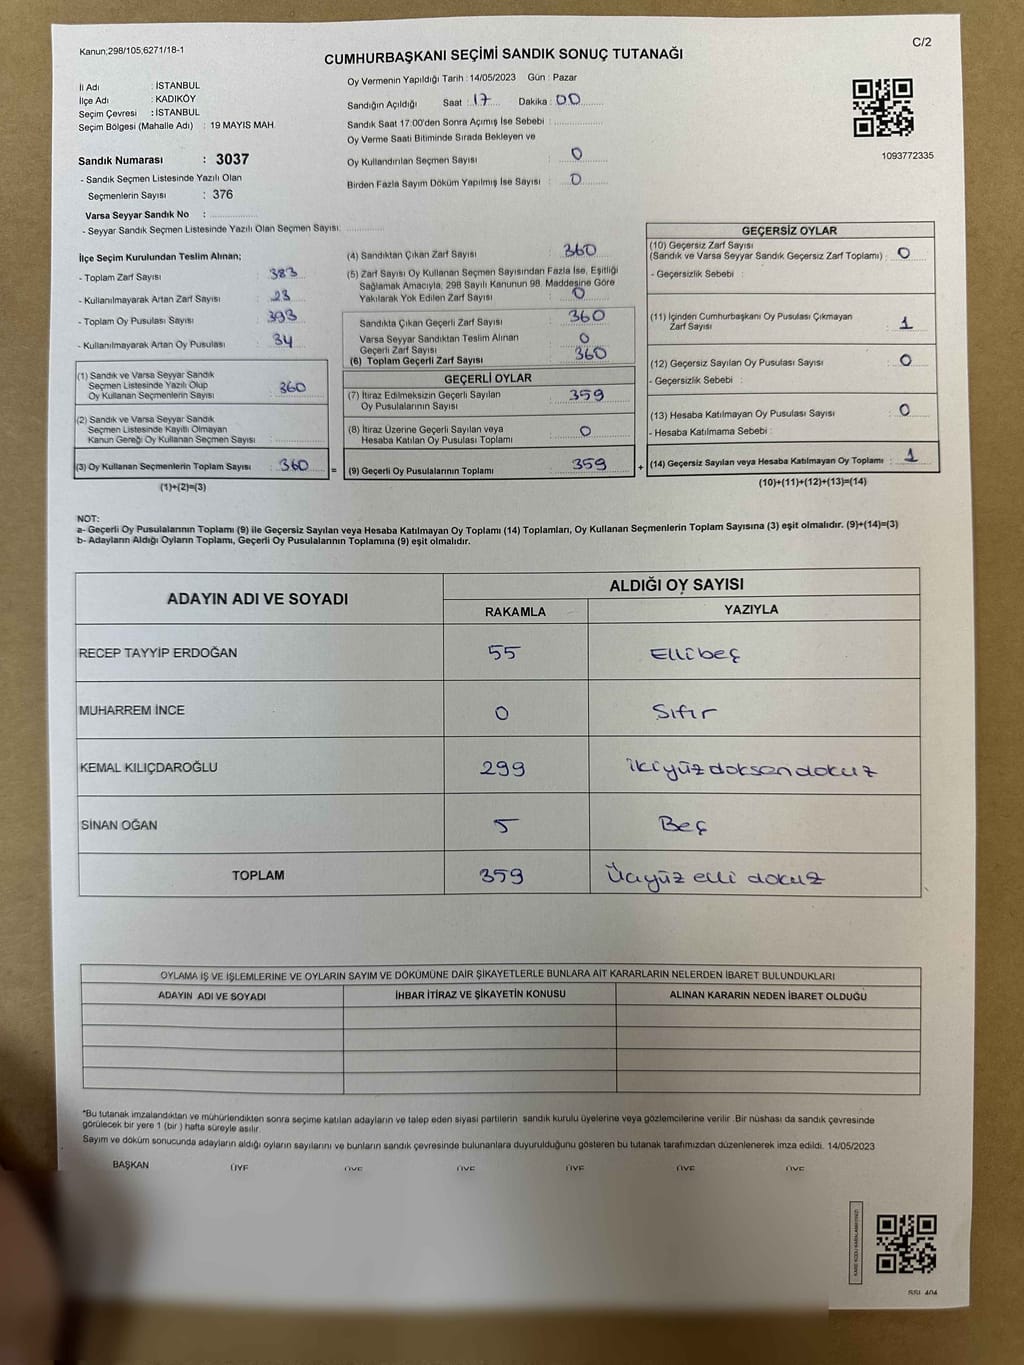 Kanun;298/105,6271/18-1
C/2
CUMHURBAŞKANI SEÇİMİ SANDIK SONUÇ TUTANAĞI
İl Adı : İSTANBUL
İlçe Adı : KADIKÖY
Seçim Çevresi : İSTANBUL
Seçim Bölgesi (Mahalle Adı) : 19 MAYIS MAH.
Sandık Numarası : 3037
- Sandık Seçmen Listesinde Yazılı Olan
Seçmenlerin Sayısı : 376
Varsa Seyyar Sandık No : ..............
- Seyyar Sandık Seçmen Listesinde Yazılı Olan Seçmen Sayısı: ..............
Oy Vermenin Yapıldığı Tarih : 14/05/2023 Gün : Pazar
Sandığın Açıldığı Saat : 17 Dakika : 00
Sandık Saat 17:00'den Sonra Açımış İse Sebebi : ..............
Oy Verme Saati Bitiminde Sırada Bekleyen ve
Oy Kullandırılan Seçmen Sayısı : 0
Birden Fazla Sayım Döküm Yapılmış İse Sayısı : 0
1093772335
İlçe Seçim Kurulundan Teslim Alınan;
- Toplam Zarf Sayısı : 383
- Kullanılmayarak Artan Zarf Sayısı : 23
- Toplam Oy Pusulası Sayısı : 393
- Kullanılmayarak Artan Oy Pusulası : 34
(1) Sandık ve Varsa Seyyar Sandık
Seçmen Listesinde Yazılı Olup
Oy Kullanan Seçmenlerin Sayısı : 360
(2) Sandık ve Varsa Seyyar Sandık
Seçmen Listesinde Kayıtlı Olmayan
Kanun Gereği Oy Kullanan Seçmen Sayısı : ..............
(3) Oy Kullanan Seçmenlerin Toplam Sayısı : 360 =
(1)+(2)=(3)
(4) Sandıktan Çıkan Zarf Sayısı : 360
(5) Zarf Sayısı Oy Kullanan Seçmen Sayısından Fazla İse, Eşitliği
Sağlamak Amacıyla, 298 Sayılı Kanunun 98. Maddesine Göre
Yakılarak Yok Edilen Zarf Sayısı : 0
Sandıkta Çıkan Geçerli Zarf Sayısı : 360
Varsa Seyyar Sandıktan Teslim Alınan
Geçerli Zarf Sayısı : 0
(6) Toplam Geçerli Zarf Sayısı : 360
GEÇERLİ OYLAR
(7) İtiraz Edilmeksizin Geçerli Sayılan
Oy Pusulalarının Sayısı : 359
(8) İtiraz Üzerine Geçerli Sayılan veya
Hesaba Katılan Oy Pusulası Toplamı : 0
(9) Geçerli Oy Pusulalarının Toplamı : 359 +
GEÇERSİZ OYLAR
(10) Geçersiz Zarf Sayısı
(Sandık ve Varsa Seyyar Sandık Geçersiz Zarf Toplamı) : 0
- Geçersizlik Sebebi :
(11) İçinden Cumhurbaşkanı Oy Pusulası Çıkmayan
Zarf Sayısı : 1
(12) Geçersiz Sayılan Oy Pusulası Sayısı : 0
- Geçersizlik Sebebi :
(13) Hesaba Katılmayan Oy Pusulası Sayısı : 0
- Hesaba Katılmama Sebebi :
(14) Geçersiz Sayılan veya Hesaba Katılmayan Oy Toplamı : 1
(10)+(11)+(12)+(13)=(14)
NOT:
a- Geçerli Oy Pusulalarının Toplamı (9) ile Geçersiz Sayılan veya Hesaba Katılmayan Oy Toplamı (14) Toplamları, Oy Kullanan Seçmenlerin Toplam Sayısına (3) eşit olmalıdır. (9)+(14)=(3)
b- Adayların Aldığı Oyların Toplamı, Geçerli Oy Pusulalarının Toplamına (9) eşit olmalıdır.
ADAYIN ADI VE SOYADI
ALDIĞI OY SAYISI
RAKAMLA YAZIYLA
RECEP TAYYİP ERDOĞAN 55 Ellibeş
MUHARREM İNCE 0 Sıfır
KEMAL KILIÇDAROĞLU 299 ikiyüzdoksandokuz
SİNAN OĞAN 5 Beş
TOPLAM 359 Üçyüz elli dokuz
OYLAMA İŞ VE İŞLEMLERİNE VE OYLARIN SAYIM VE DÖKÜMÜNE DAİR ŞİKAYETLERLE BUNLARA AİT KARARLARIN NELERDEN İBARET BULUNDUKLARI
ADAYIN ADI VE SOYADI İHBAR İTİRAZ VE ŞİKAYETİN KONUSU ALINAN KARARIN NEDEN İBARET OLDUĞU
*Bu tutanak imzalandıktan ve mühürlendikten sonra seçime katılan adayların ve talep eden siyasi partilerin sandık kurulu üyelerine veya gözlemcilerine verilir .Bir nüshası da sandık çevresinde
görülecek bir yere 1 (bir ) hafta süreyle asılır.
Sayım ve döküm sonucunda adayların aldığı oyların sayılarını ve bunların sandık çevresinde bulunanlara duyurulduğunu gösteren bu tutanak tarafımızdan düzenlenerek imza edildi. 14/05/2023
BAŞKAN ÜYE ÜYE ÜYE ÜYE ÜYE ÜYE